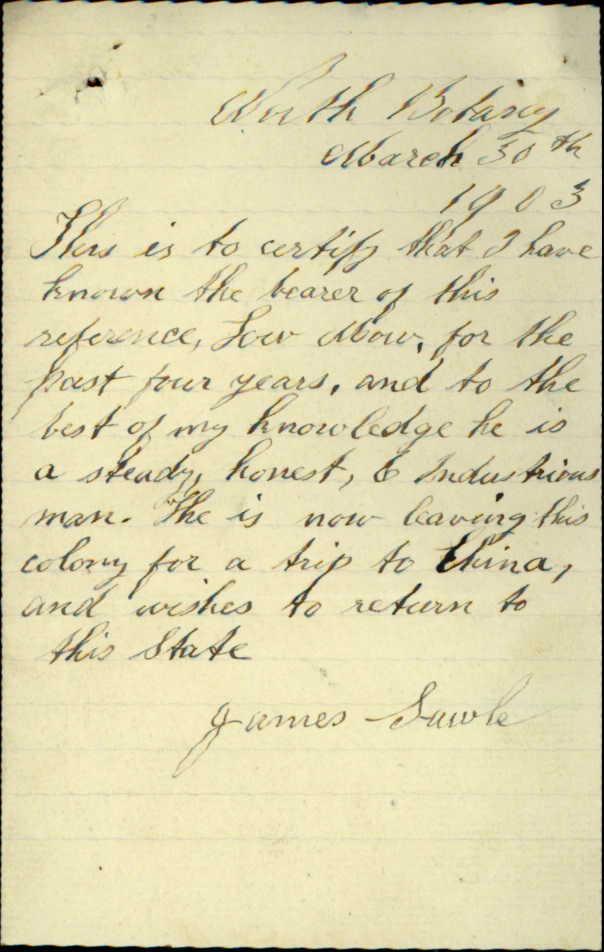 North Botany
March 30th
1903
This is to certify that I have
known the bearer of this
reference, Low Mow, for the
past four years, and to the
best of my knowledge he is
a steady, honest, & Industrious
man. The is now leaving this
colony for a trip to China,
and wishes to return to
this State
James Sawle